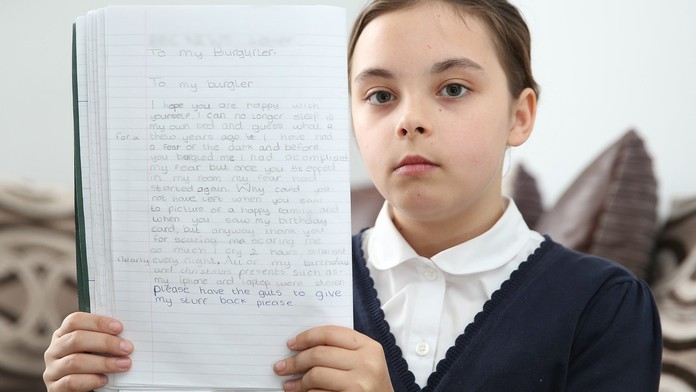 To my burgurler.
To my burgler
I hope you are happy with
yourself, I can no longer sleep in
my own bed and guess what a
for a few years ago I have had
a fear of the dark and before
you burgled me I had
my fear but once you stepped
in my room my fear had
started again. Why could you
not have left when you saw
to picture of a happy family and
when you saw my birthday
card, but anyway thank you
for scaring me scaring me
so much I cry 2 hours
nearly every night. All of my birthday
and christmas presents such as
my iphone and laptop were stolen
please have the guts to give
my stuff back please